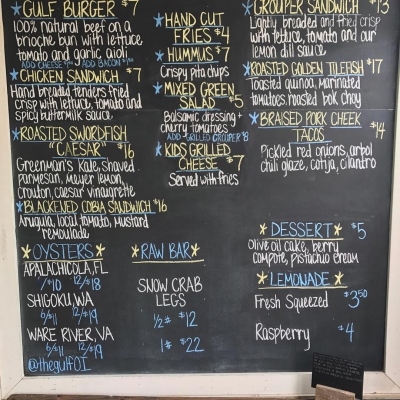 ★GULF BURGER $7
100% natural beef on a
brioche bun with lettuce
tomato and garlic aioli
ADD CHEESE ADD BACON
★CHICKEN SANDWICH $7
Hand breaded tenders fried
crisp with lettuce, tomato and
spicy buttermilk sauce
★ROASTED SWORDFISH
"CAESAR" $16
Greenman's Kale, Shaved
Parmesan, Meyer lemon,
Crouton, caesar vinaigrette
★BLACKEYED COBIA SANDWICH $16
Arugula, local tomato, mustard
remoulade
★OYSTERS★
APALACHICOLA, FL
7/$10 12/$18
SHIGOKU, WA
6/$11 12/$19
WARE RIVER, VA
6/$11 12/$19
@thegulfOI
★HAND CUT
FRIES $4
★HUMMUS $7
Crispy pita chips
★MIXED GREEN
SALAD $5
Balsamic dressing +
cherry tomatoes
ADD GRILLED GROUPER $8
★KIDS GRILLED
CHEESE $7
Served with fries
★RAW BAR★
SNOW CRAB
LEGS
½# $12
1# $22
GROUPER SANDWICH $13
Lightly breaded and fried crisp
with lettuce, tomato and our
lemon dill sauce
★ROASTED GOLDEN TILEFISH $17
Toasted quinoa, marinated
tomatoes, roasted bok choy
★BRAISED PORK CHEEK
TACOS $14
Pickled red onions, arbol
chili glaze, cotija, cilantro
★DESSERT★ $5
Olive oil cake, berry
compote, pistachio cream
★LEMONADE★
Fresh Squeezed $3.50
Raspberry $4